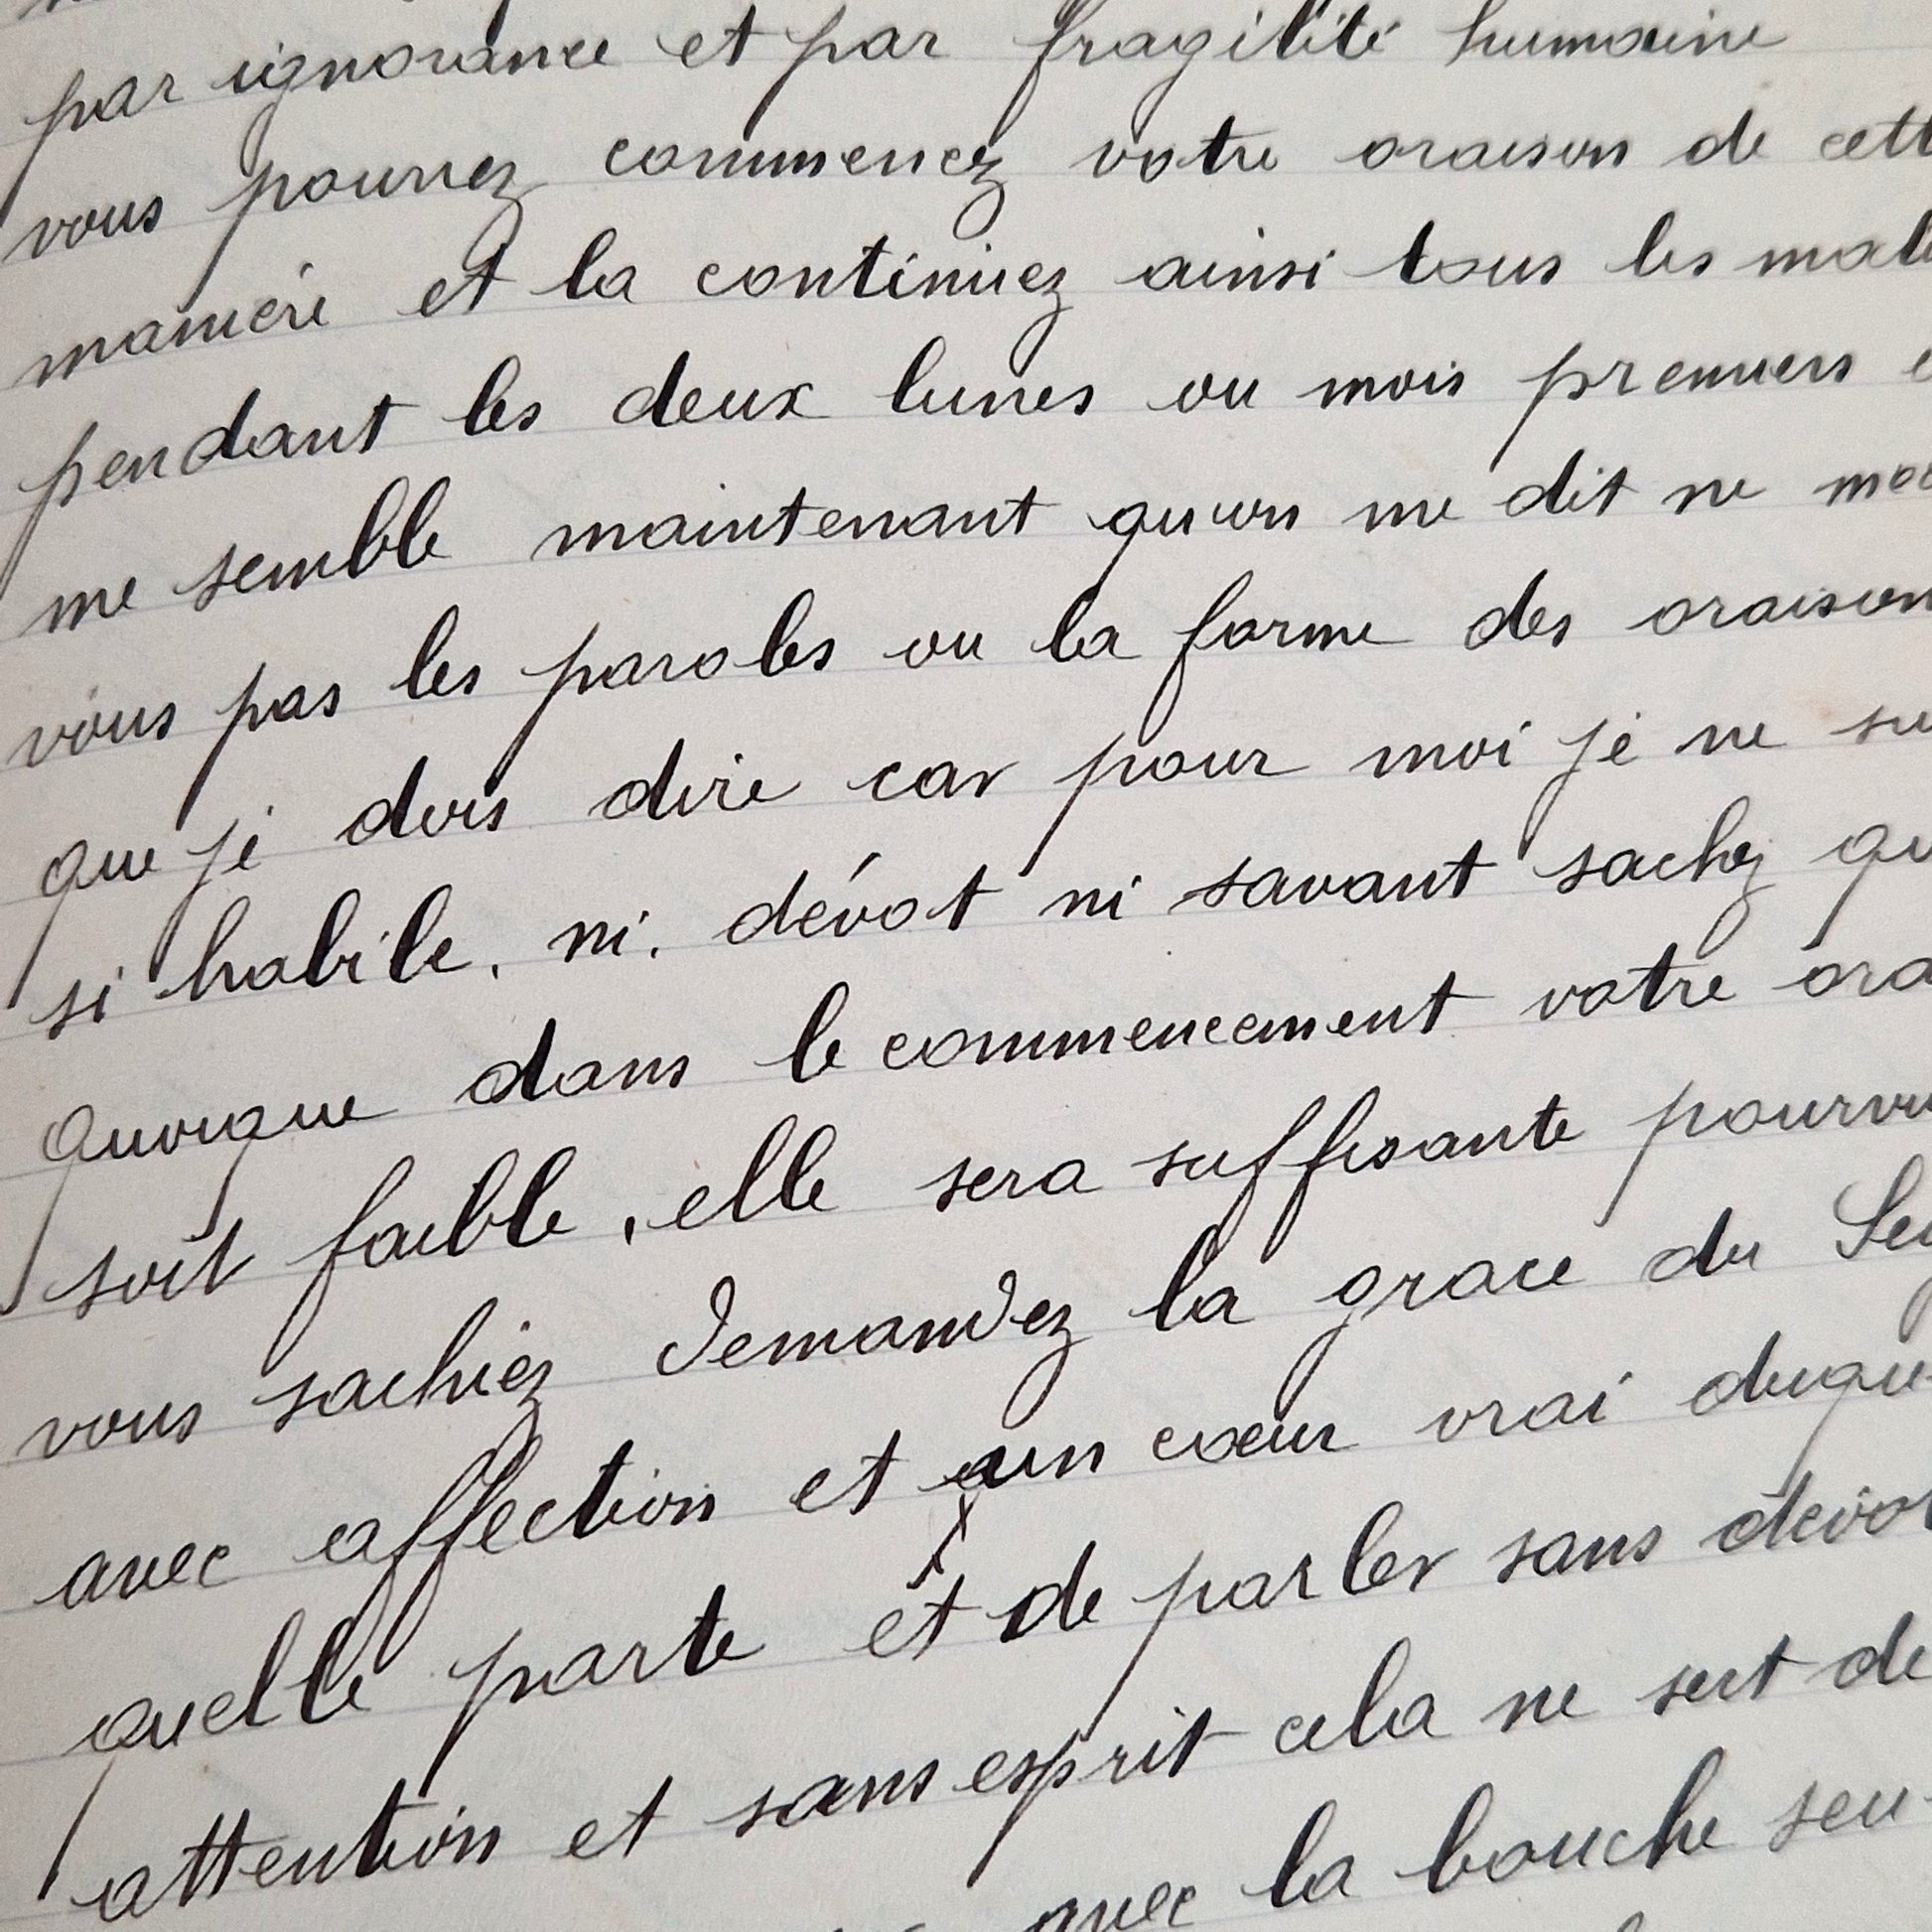 par ignorance et par fragilité humaine
vous pourrez commencez votre oraison de cett
maniére et la continuez ainsi tous les mat
pendant les deux lunes ou mois premiers
me semble maintenant qu'on me dit ne
vous pas les paroles ou la forme des oraison
que je dois dire car pour moi je ne su
si habile, ni, dévot ni savant sachez qu
quoique dans le commencement votre ora
soit faible, elle sera suffisante pourvu
vous sachiez demandez la grace du Sei
avec affection et un coeur vrai duque
quelle parte et de parler sans dévot
attention et sans esprit cela ne sert de
avec la bouche seu